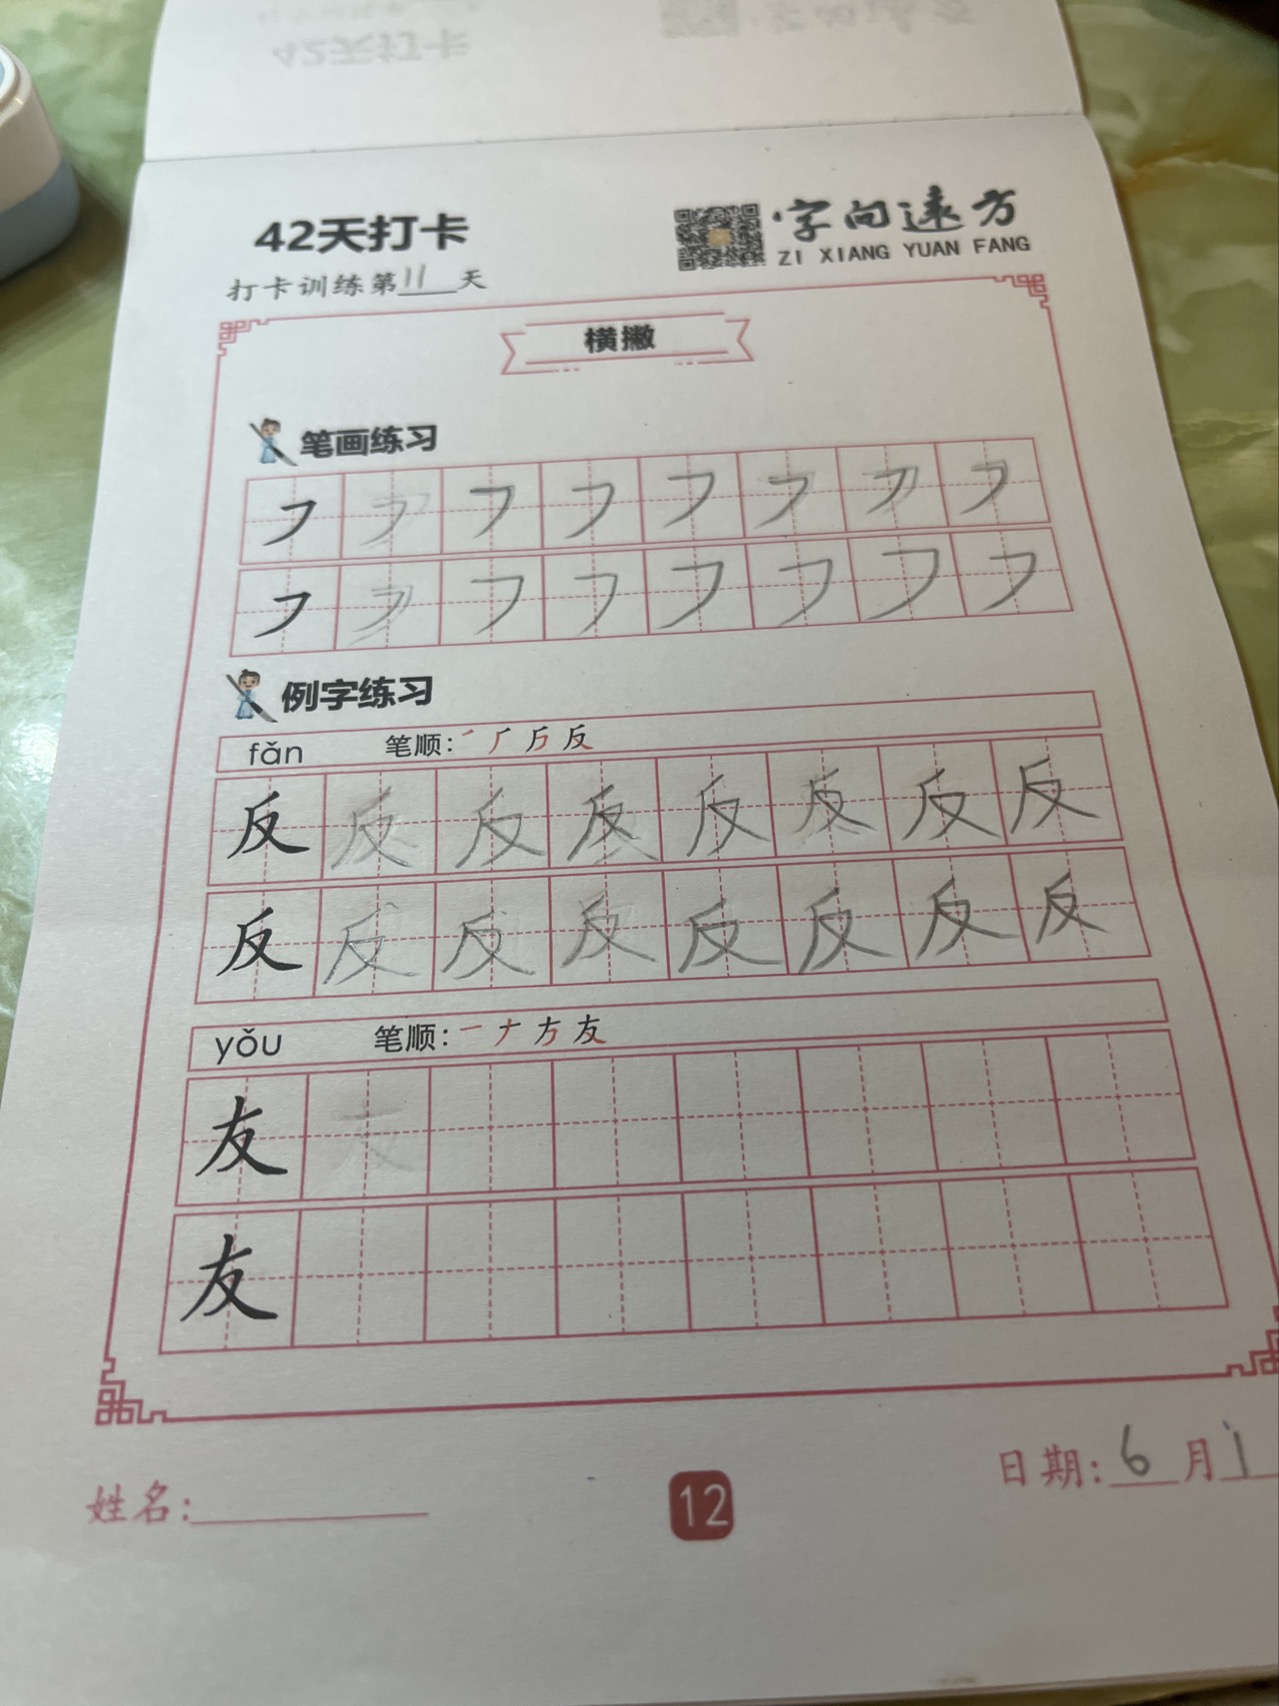 42天打卡
42天打卡
字向远方
ZI XIANG YUAN FANG
打卡训练第11天
横撇
笔画练习
㇇ ㇇ ㇇ ㇇ ㇇ ㇇ ㇇ ㇇
㇇ ㇇ ㇇ ㇇ ㇇ ㇇ ㇇ ㇇
例字练习
fǎn 笔顺: 反
反 反 反 反 反 反 反 反
反 反 反 反 反 反 反 反
yǒu 笔顺: 一 ナ 方 友
友 友
友
姓名:
12
日期: 6月1